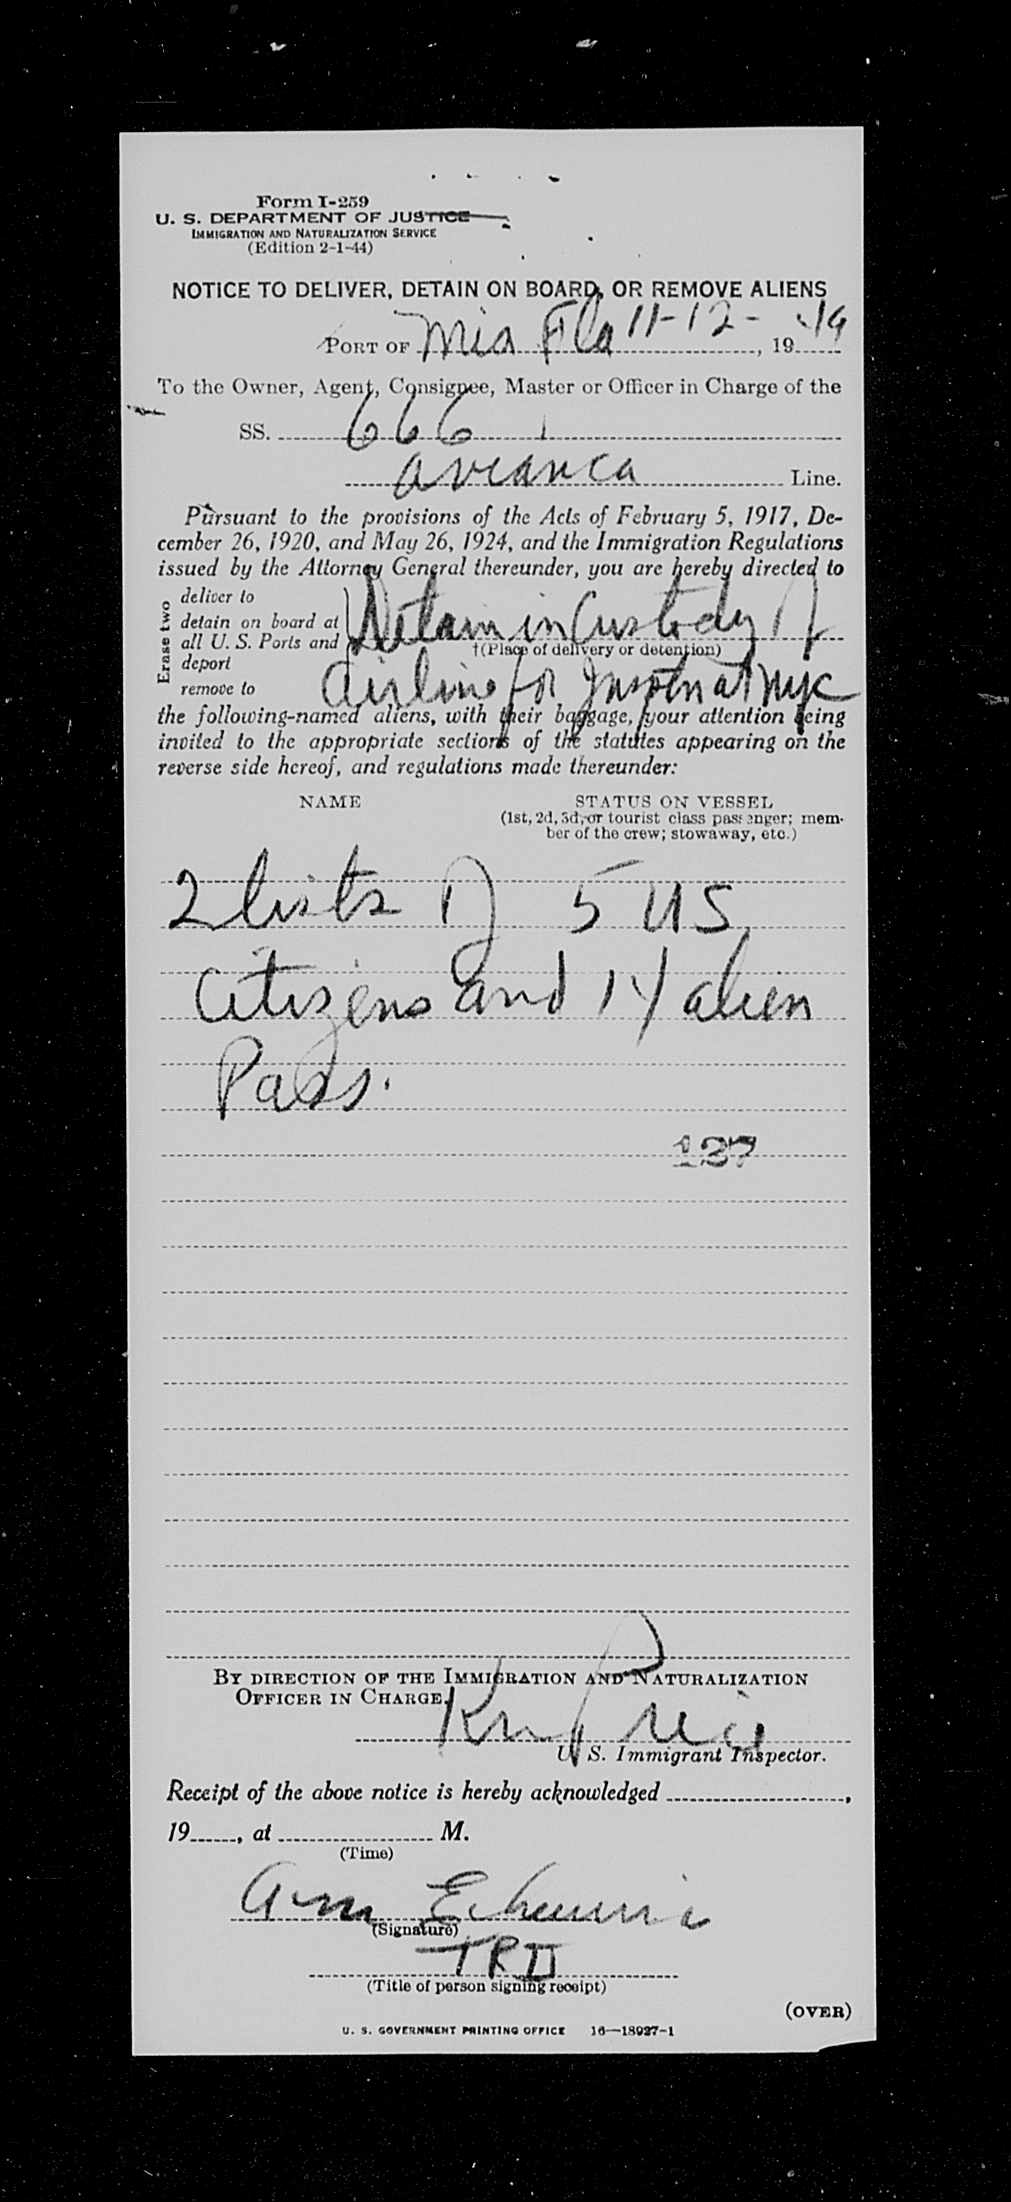 Form I-259
U. S. DEPARTMENT OF JUSTICE
IMMIGRATION AND NATURALIZATION SERVICE
(Edition 2-1-44)
NOTICE TO DELIVER, DETAIN ON BOARD, OR REMOVE ALIENS
PORT OF Mia Fla 11-12-, 19 49
To the Owner, Agent, Consignee, Master or Officer in Charge of the
SS. 666
Avianca Line.
Pursuant to the provisions of the Acts of February 5, 1917, De-
cember 26, 1920, and May 26, 1924, and the Immigration Regulations
issued by the Attorney General thereunder, you are hereby directed to
Erase two
deliver to
detain on board at
all U. S. Ports and
deport
remove to
Detain in Custody of
†(Place of delivery or detention)
Airline for Insptn at NYC
the following-named aliens, with their baggage, your attention being
invited to the appropriate sections of the statutes appearing on the
reverse side hereof, and regulations made thereunder:
NAME STATUS ON VESSEL
(1st, 2d, 3d, or tourist class passenger; mem-
ber of the crew; stowaway, etc.)
2 lists of 5 US
Citizens and 14 alien
Pass.
127
BY DIRECTION OF THE IMMIGRATION AND NATURALIZATION
OFFICER IN CHARGE.
U. S. Immigrant Inspector.
Receipt of the above notice is hereby acknowledged ,
19 , at M.
(Time)
(Signature)
(Title of person signing receipt)
(OVER)
U. S. GOVERNMENT PRINTING OFFICE 16—18927-1